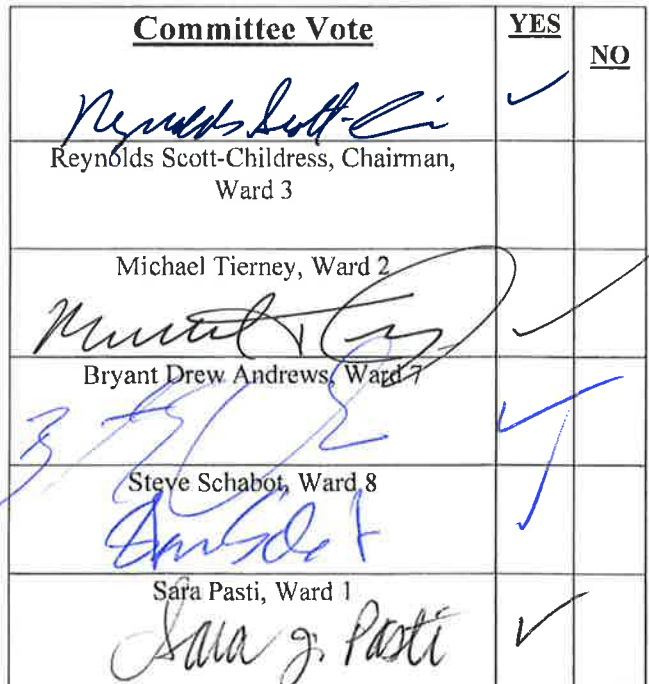 Committee Vote YES NO
Reynolds Scott-Chi
✓
Reynolds Scott-Childress, Chairman,
Ward 3
Michael Tierney, Ward 2
✓
Bryant Drew Andrews, Ward 7
✓
Steve Schabot, Ward 8
✓
Sara Pasti, Ward 1
Sara J. Pasti ✓